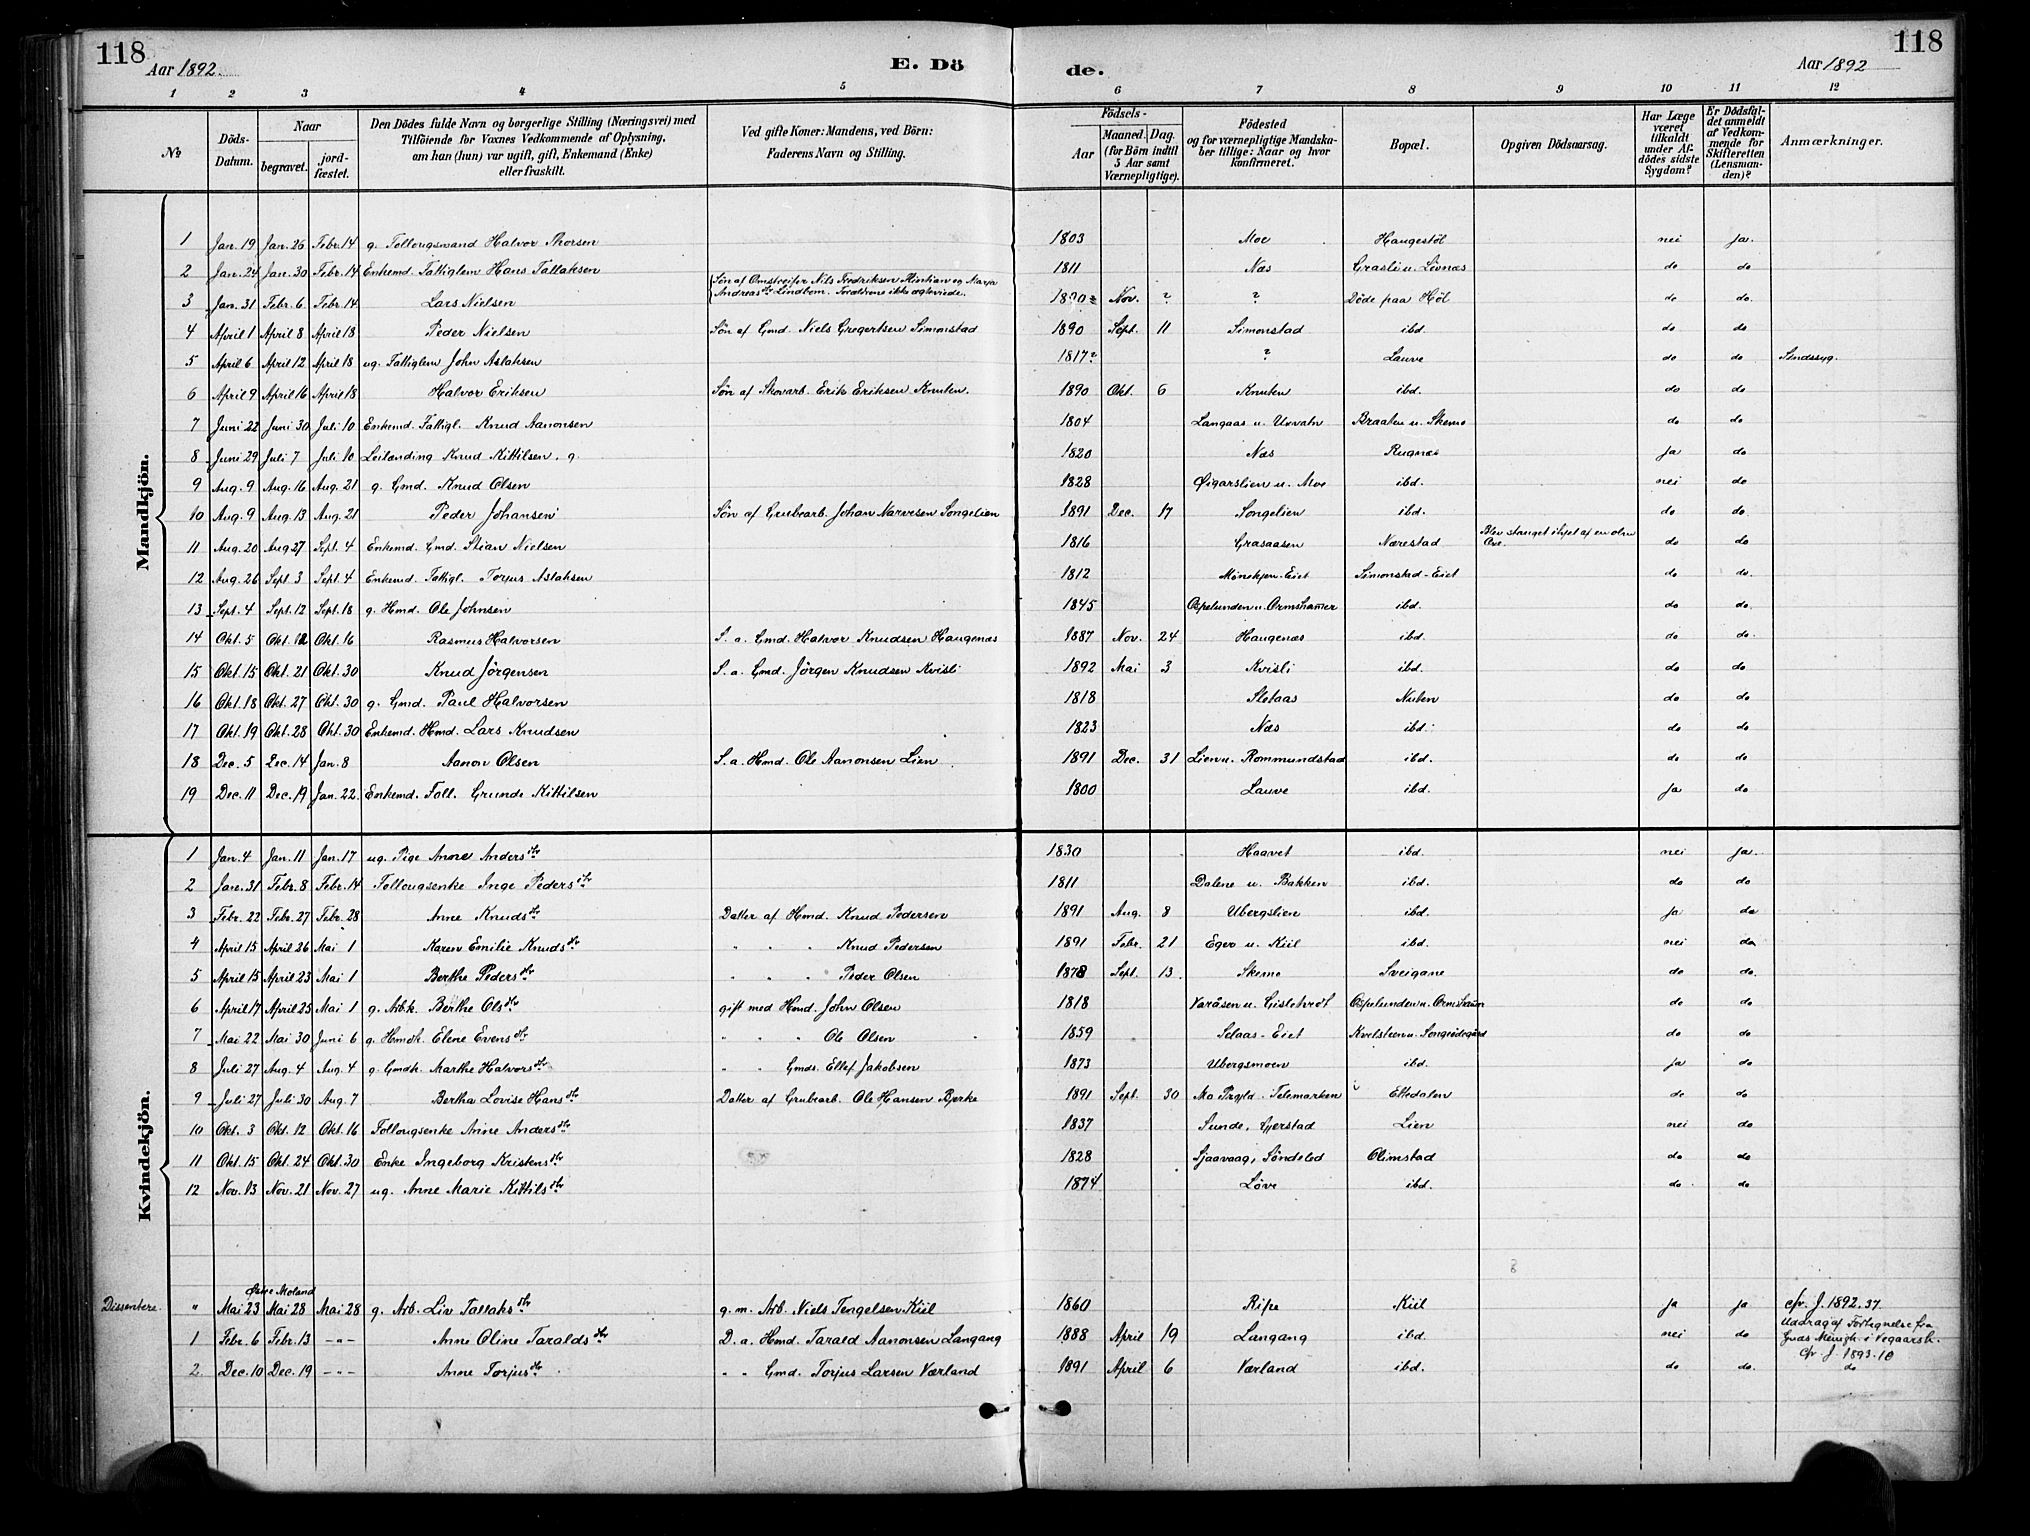 118
118
Aar 1892.
E. Dö de.
Aar 1892
1 2 3 4 5 6 7 8 9 10 11 12
№
Döds-Datum.
Naar
begravet.
jord-fæstet.
Den Dödes fulde Navn og borgerlige Stilling (Næringsvei) med
Tilföiende for Voxnes Vedkommende af Oplysning,
om han (hun) var ugift, gift, Enkemand (Enke)
eller fraskilt.
Ved gifte Koner: Mandens, ved Börn:
Faderens Navn og Stilling.
Födsels-
Aar
Maaned. Dag.
(for Börn indtil
5 Aar samt
Værnepligtige).
Födested
og for værnepligtige Mandska-
ber tillige: Naar og hvor
konfirmeret.
Bopæl.
Opgiven Dödsaarsag.
Har Læge
været
tilkaldt
under Af-
dödes sidste
Sygdom?
Er Dödsfal-
det anmeldt
af Vedkom-
mende for
Skifteretten
(Lensman-
den)?
Anmærkninger.
Mandkjön.
1 Jan. 19 Jan. 26 Febr. 14 g. Follougsmand Halvor Thorsen 1803 Moe Haugestöl nei ja.
2 Jan. 24 Jan. 30 Febr. 14 Enkemd. Fattiglem Hans Tallaksen 1811 Næs Grasli u. Lövnæs do do
{Søn af Omstreifer Nils Fredriksen og Marja
3 Jan. 31 Febr. 6 Febr. 14 Lars Nielsen Andreasdtr Lindbom. Forældrene ikke ægteviede. 1890? Nov. ? ? Döde paa Höl do do.
4 April 1 April 8 April 18 Peder Nielsen Søn af Gmd. Niels Gregertsen Simonstad 1890 Sept. 11 Simonstad ibd. do do
5 April 6 April 12 April 18 ug. Fattiglem John Aslaksen 1817? ? Lauve do do Sindssyg.
6 April 9 April 16 April 18 Halvor Eriksen Søn af Skovarb. Erik Eriksen Knuten. 1890 Okt. 6 Knuten ibd. do do
7 Juni 22 Juni 30 Juli 10 Enkemd. Fattigl. Knud Aanonsen 1804 Langaas u. Uxvatn Braaten u. Skemo do do
8 Juni 29 Juli 7 Juli 10 Leilænding Knud Kittilsen. g. 1820 Næs Rugnæs ja do
9 Aug. 9 Aug. 16 Aug. 21 g. Gmd. Knud Olsen 1828 Øigarslien u. Moe ibd. nei do
10 Aug. 9 Aug. 13 Aug. 21 Peder Johansen Søn af Grubearb. Johan Narvesen Songelien 1891 Dec. 17 Songelien ibd. do do
11 Aug. 20 Aug 27 Sept. 4 Enkemd. Gmd. Stian Nielsen 1816 Grasaasen Nærestad Blev stanget ihjel af en olm Oxe. do do
12 Aug. 26 Sept. 3 Sept. 4 Enkemd. Fattigl. Torjus Aslaksen 1812 Mönekjen-Eiet Simonstad-Eiet do do.
13 Sept. 4 Sept. 12 Sept. 18 g. Hmd. Ole Johnsen 1845 Ospelunden u. Ormshamer ibd. do do
14 Okt. 5 Okt. 12 Okt. 16 Rasmus Halvorsen S. a. Gmd. Halvor Knudsen Haugenæs 1887 Nov. 24 Haugenæs ibd. do do.
15 Okt. 15 Okt. 21 Okt. 30 Knud Jörgensen S. a. Gmd. Jörgen Knudsen Kvisli 1892 Mai 3 Kvisli ibd. do do
16 Okt. 18 Okt. 27 Okt. 30 g. Gmd. Paul Halvorsen 1818 Sletaas Nuten do do
17 Okt. 19 Okt. 28 Okt. 30 Enkemd. Hmd. Lars Knudsen 1823 Næs ibd. do do
18 Dec. 5 Dec. 14 Jan. 8 Aanon Olsen S. a. Hmd. Ole Aanonsen Lien 1891 Dec. 31 Lien u. Rommundstad ibd. do do
19 Dec. 11 Dec. 19 Jan. 22 Enkemd. Foll. Grunde Kittilsen 1800 Lauve ibd. ja do
Kvindekjön.
1 Jan. 4 Jan. 11 Jan. 17 ug. Pige Anne Andersdtr 1830 Haavet ibd. nei ja.
2 Jan. 31 Febr. 8 Febr. 14 Follougsenke Inge Pedersdtr 1811 Dalene u. Bakken ibd. do do
3 Febr. 22 Febr. 27 Febr. 28 Anne Knudsdtr Datter af Hmd. Knud Pedersen 1891 Aug. 8 Ubergslien ibd. ja do
4 April 15 April 26 Mai 1 Karen Emilie Knudsdtr " " " Knud Pedersen 1891 Febr. 21 Egro u. Kiil ibd. nei do
5 April 15 April 23 Mai 1 Berthe Pedersdtr " " " Peder Olsen 1878 Sept. 13 Skemo Sveigane do do
6 April 17 April 25 Mai 1 g. Arbk. Berthe Olsdtr gift med Hmd. John Olsen 1818 Varåsen u. Gisleknöt Ospelunden u. Ormshamer do do
7 Mai 22 Mai 30 Juni 6 g. Hmdk. Elene Evensdtr " " " Ole Olsen 1859 Selaas-Eiet Kvelsteen u. Songedegård do do
8 Juli 27 Aug. 4 Aug. 4 g. Gmdk. Marthe Halvorsdtr " " Gmds. Ellef Jakobsen 1873 Ubergsmoen ibd. ja do
9 Juli 27 Juli 30 Aug. 7 Bertha Lovise Hansdtr Datter af Grubearb. Ole Hansen Bjerke 1891 Sept. 30 Mo Prgld. i Telemarken Ettedalen do do
10 Okt. 3 Okt. 12 Okt. 16 Follougsenke Anne Andersdtr 1837 Sunde, Gjerstad Lien nei do
11 Okt. 15 Okt. 24 Okt. 30 Enke Ingeborg Kristensdtr 1828 Sjaavaag, Söndeled Olimstad do do
12 Nov. 13 Nov. 21 Nov. 27 ug. Anne Marie Kittilsdtr 1874 Löve ibd. do do
Dissentere.
Östre Moland
" Mai 23 Mai 28 Mai 28 g. Arb. Liv Tallaksdtr g. m. Arb. Niels Tengelsen Kiil 1860 Ripe Kiil ja ja cfr. J. 1892. 37.
1 Febr. 6 Febr. 13 -"- Anne Oline Taraldsdtr D. a. Hmd. Tarald Aanonsen Langang 1888 April 19 Langang ibd. nei do Uddrag af Fortegnelse fra
Guds Menigh. i Vegaarsh.
cfr. J. 1893. 10
2. Dec. 10 Dec. 19 -"- Anne Torjusdtr " " Gmd. Torjus Larsen Værland 1891 April 6 Værland ibd. do do. do